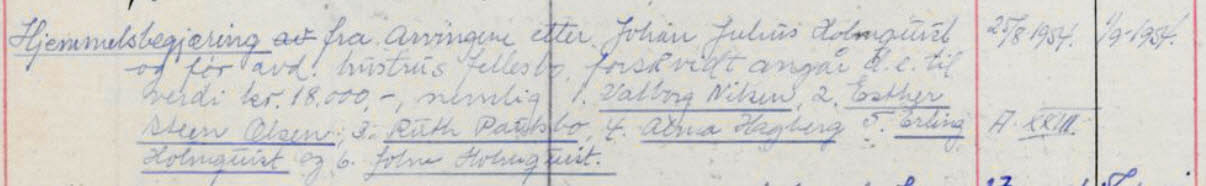 Hjemmelsbegjæring av fra Arvingene etter Johan Julius Holmquist 25/8-1954. 1/9-1954.
og før avd. hustrus fellesbo, forsåvidt angår d.e. til
verdi kr. 18.000,-, nemlig 1. Valborg Nilsen, 2. Esther
Steen Olsen, 3. Ruth Paulsbo, 4. Alma Hagberg 5. Erling A. XXIII.
Holmquist og 6. John Holmquist.